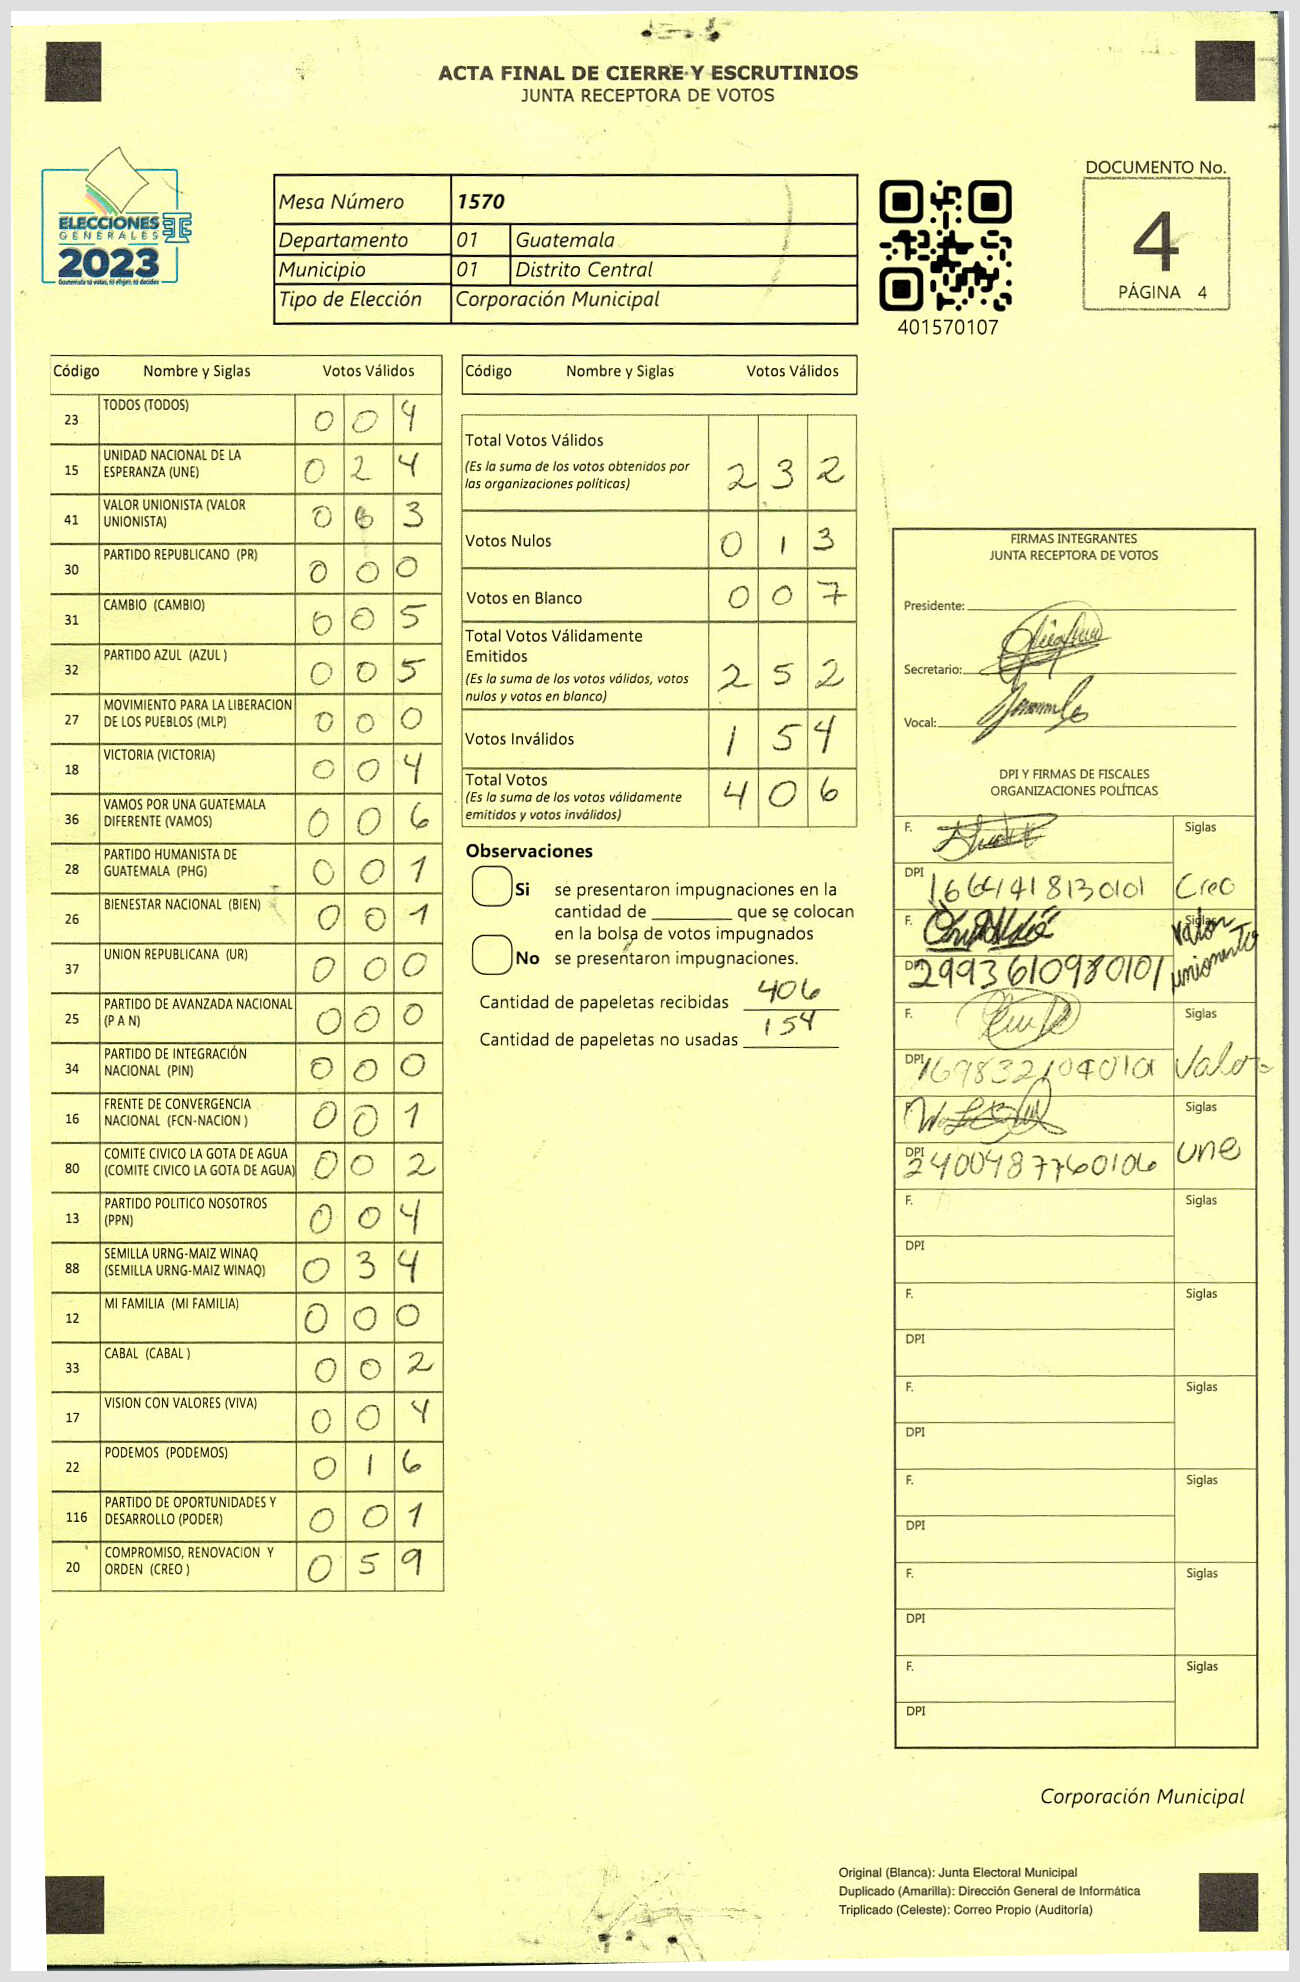 ACTA FINAL DE CIERRE Y ESCRUTINIOS
JUNTA RECEPTORA DE VOTOS
ELECCIONES
GENERALES
2023
Guatemala tú votas, tú eliges, tú decides
Mesa Número 1570
Departamento 01 Guatemala
Municipio 01 Distrito Central
Tipo de Elección Corporación Municipal
401570107
DOCUMENTO No.
4
PÁGINA 4
Código Nombre y Siglas Votos Válidos
23 TODOS (TODOS) 0 0 4
15 UNIDAD NACIONAL DE LA
ESPERANZA (UNE) 0 2 4
41 VALOR UNIONISTA (VALOR
UNIONISTA) 0 6 3
30 PARTIDO REPUBLICANO (PR) 0 0 0
31 CAMBIO (CAMBIO) 0 0 5
32 PARTIDO AZUL (AZUL ) 0 0 5
27 MOVIMIENTO PARA LA LIBERACION
DE LOS PUEBLOS (MLP) 0 0 0
18 VICTORIA (VICTORIA) 0 0 4
36 VAMOS POR UNA GUATEMALA
DIFERENTE (VAMOS) 0 0 6
28 PARTIDO HUMANISTA DE
GUATEMALA (PHG) 0 0 1
26 BIENESTAR NACIONAL (BIEN) 0 0 1
37 UNION REPUBLICANA (UR) 0 0 0
25 PARTIDO DE AVANZADA NACIONAL
(P A N) 0 0 0
34 PARTIDO DE INTEGRACIÓN
NACIONAL (PIN) 0 0 0
16 FRENTE DE CONVERGENCIA
NACIONAL (FCN-NACION ) 0 0 1
80 COMITE CIVICO LA GOTA DE AGUA
(COMITE CIVICO LA GOTA DE AGUA) 0 0 2
13 PARTIDO POLITICO NOSOTROS
(PPN) 0 0 4
88 SEMILLA URNG-MAIZ WINAQ
(SEMILLA URNG-MAIZ WINAQ) 0 3 4
12 MI FAMILIA (MI FAMILIA) 0 0 0
33 CABAL (CABAL ) 0 0 2
17 VISION CON VALORES (VIVA) 0 0 4
22 PODEMOS (PODEMOS) 0 1 6
116 PARTIDO DE OPORTUNIDADES Y
DESARROLLO (PODER) 0 0 1
20 COMPROMISO, RENOVACION Y
ORDEN (CREO ) 0 5 9
Código Nombre y Siglas Votos Válidos
Total Votos Válidos
(Es la suma de los votos obtenidos por
las organizaciones políticas) 2 3 2
Votos Nulos 0 1 3
Votos en Blanco 0 0 7
Total Votos Válidamente
Emitidos
(Es la suma de los votos válidos, votos
nulos y votos en blanco) 2 5 2
Votos Inválidos 1 5 4
Total Votos
(Es la suma de los votos válidamente
emitidos y votos inválidos) 4 0 6
Observaciones
Si se presentaron impugnaciones en la
cantidad de ________ que se colocan
en la bolsa de votos impugnados
No se presentaron impugnaciones.
Cantidad de papeletas recibidas 406
Cantidad de papeletas no usadas 154
FIRMAS INTEGRANTES
JUNTA RECEPTORA DE VOTOS
Presidente:
Secretario:
Vocal:
DPI Y FIRMAS DE FISCALES
ORGANIZACIONES POLÍTICAS
F. Siglas
DPI 1664141813 0101 Creo
F. Siglas
Valor
unionista
DPI 2993610980101
F. Siglas
DPI 1698321040101 Valor
Siglas
DPI 2400487760106 une
F. Siglas
DPI
F. Siglas
DPI
F. Siglas
DPI
F. Siglas
DPI
F. Siglas
DPI
F. Siglas
DPI
Corporación Municipal
Original (Blanca): Junta Electoral Municipal
Duplicado (Amarilla): Dirección General de Informática
Triplicado (Celeste): Correo Propio (Auditoría)